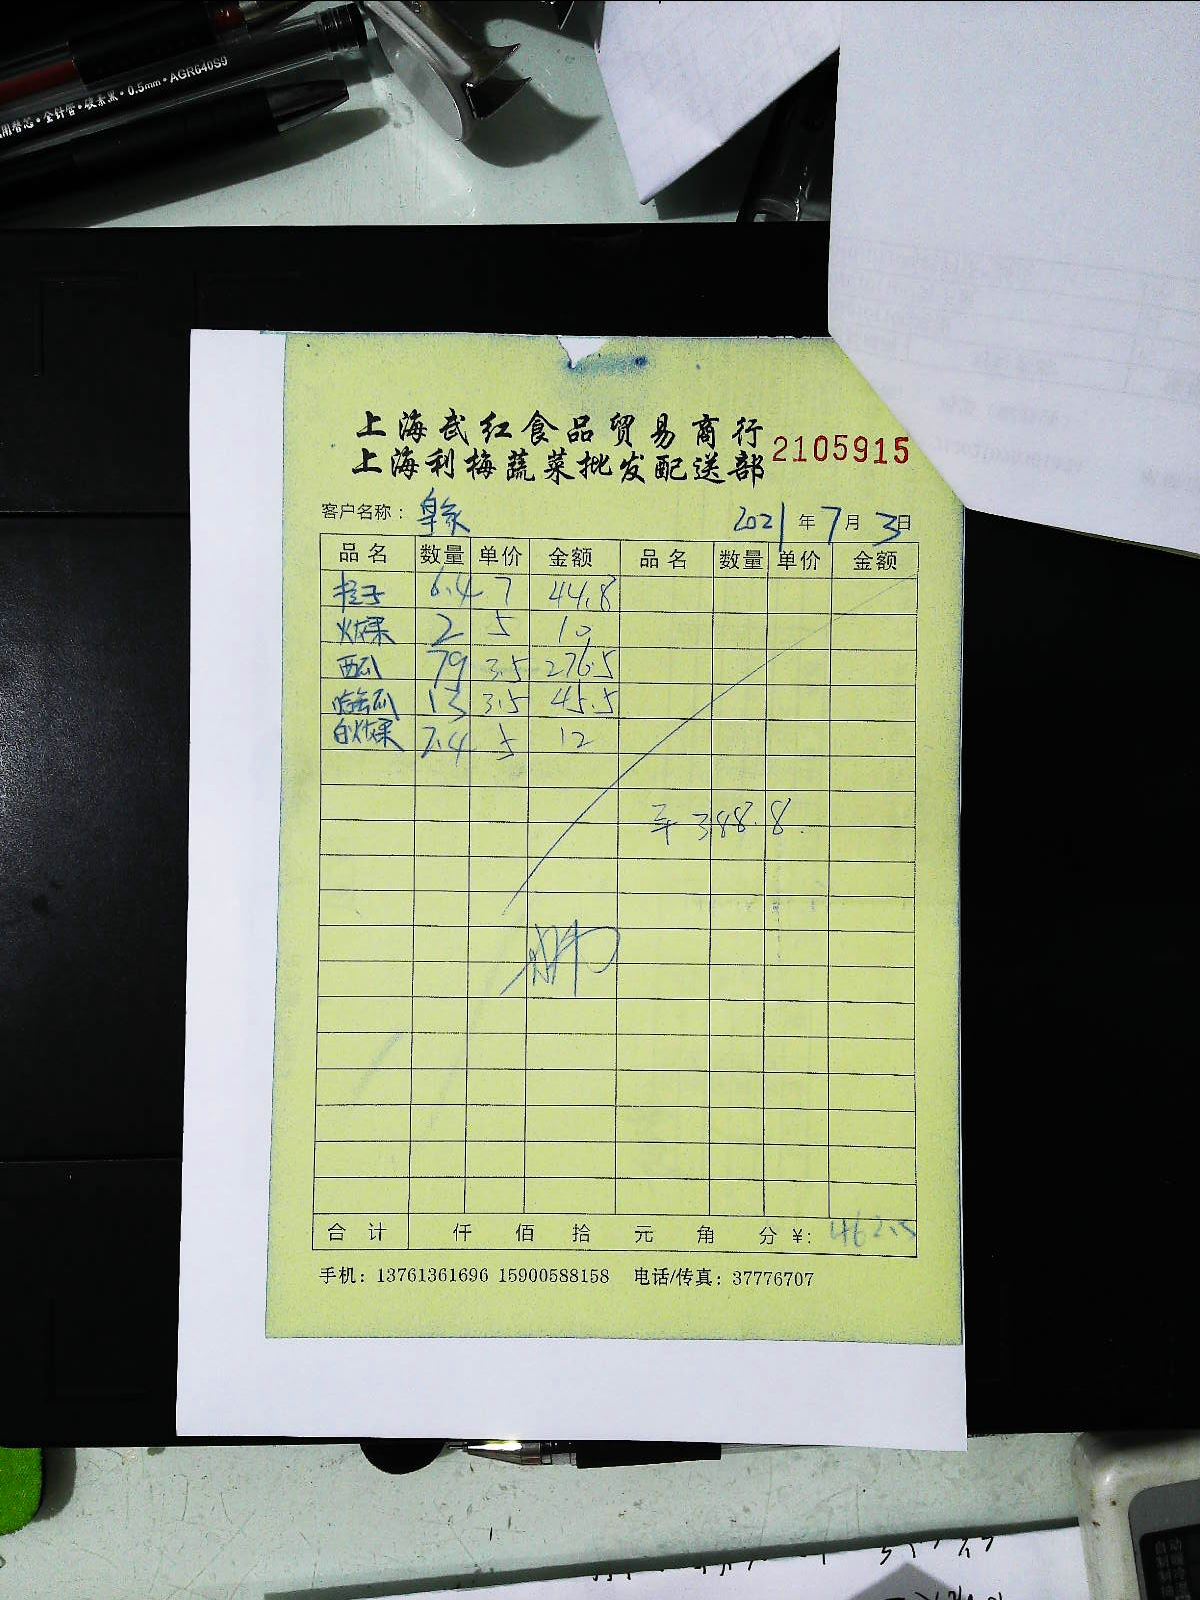 用替芯·全针管·碳素黑·0.5mm·AGR640S9
上海武红食品贸易商行
上海利梅蔬菜批发配送部
2105915
客户名称：皇家
2021年7月3日
品名 数量 单价 金额 品名 数量 单价 金额
桔子 6.4 7 44.8
火龙果 2 5 10
西瓜 79 3.5 276.5
哈密瓜 13 3.5 45.5
白火龙果 2.4 5 12
388.8
合计 仟 佰 拾 元 角 分 ¥: 462.5
手机：13761361696 15900588158 电话/传真：37776707